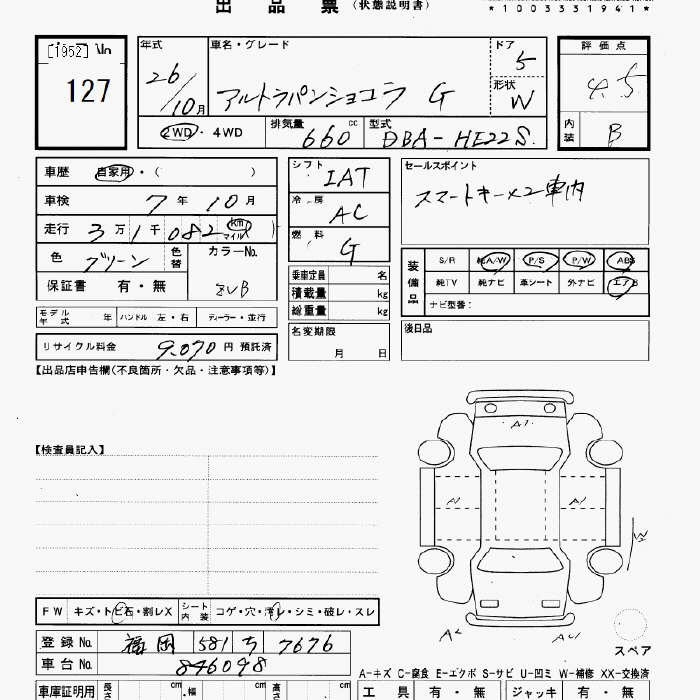 出品票 (状態説明書)
*1003331941*
[1952]
127
年式 26/10月
車名・グレード アルトラパンショコラ G
ドア 5
形状 W
評価点 4.5
内装 B
2WD・4WD 排気量 660 cc 型式 DBA-HE22S
車歴 自家用・( )
車検 7年10月
走行 3万1千082 km マイル
色 グリーン 色替 カラーNo. ZVB
保証書 有・無
モデル年式 年 ハンドル 左・右 ディーラー・並行
リサイクル料金 9,070円 預託済
シフト IAT
冷房 AC
燃料 G
乗車定員 名
積載量 kg
総重量 kg
名変期限
月 日
セールスポイント
スマートキー×2 車内
装備品 S/R 純A/W P/S P/W ABS
純TV 純ナビ 革シート 外ナビ エアB
ナビ型番:
後日品
【出品店申告欄(不良箇所・欠品・注意事項等)】
【検査員記入】
A1
A1
A1
W
A2
スペア
FW キズ・トビ石・割レX シート内装 コゲ・穴・汚レ・シミ・破レ・スレ
登録No. 福岡 581 ち 7676
車台No. 846098
A-キズ C-腐食 E-エクボ S-サビ U-凹ミ W-補修 XX-交換済
車庫証明用 長さ cm 幅 cm 高さ cm
工具 有・無 ジャッキ 有・無